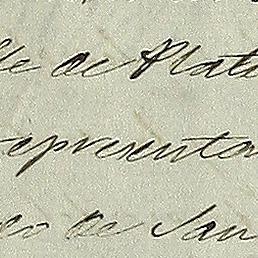 lle de Plato
representa
lo de San